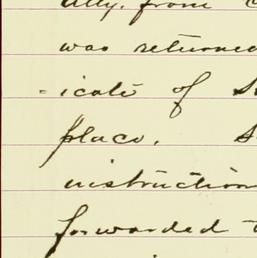 ally, from
was returned
-icate of
place.
instruction
forwarded